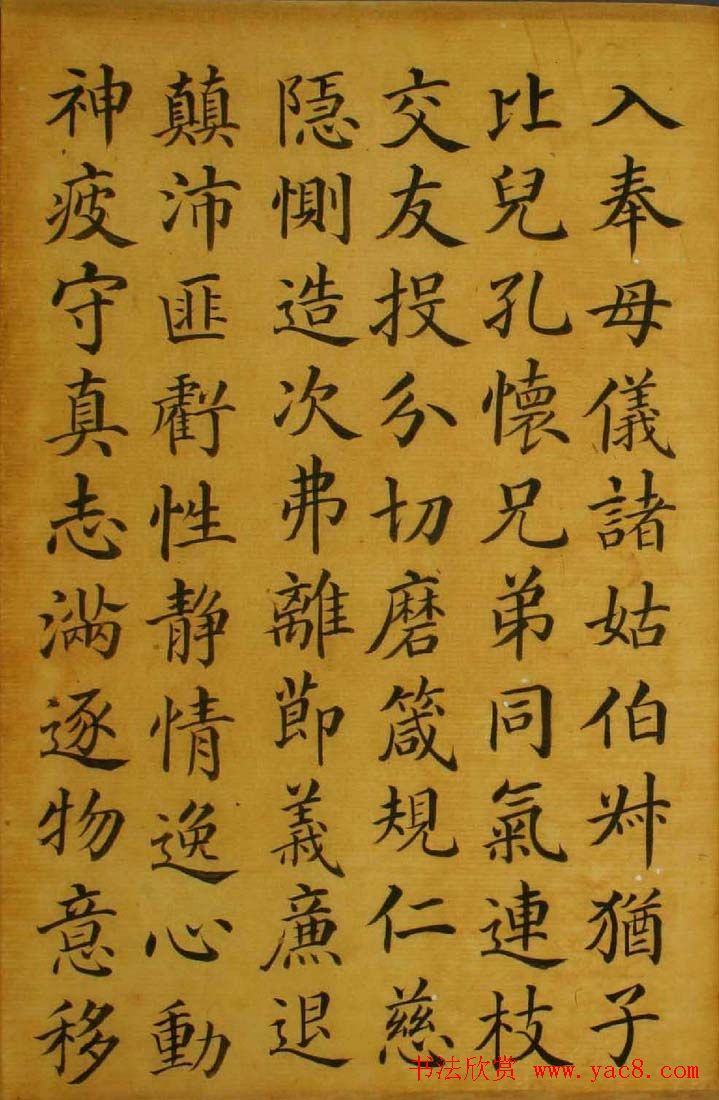 入奉母儀諸姑伯叔猶子
比兒孔懷兄弟同氣連枝
交友投分切磨箴規仁慈
隱惻造次弗離節義廉退
顛沛匪虧性静情逸心動
神疲守真志滿逐物意移
书法欣赏 www.yac8.com